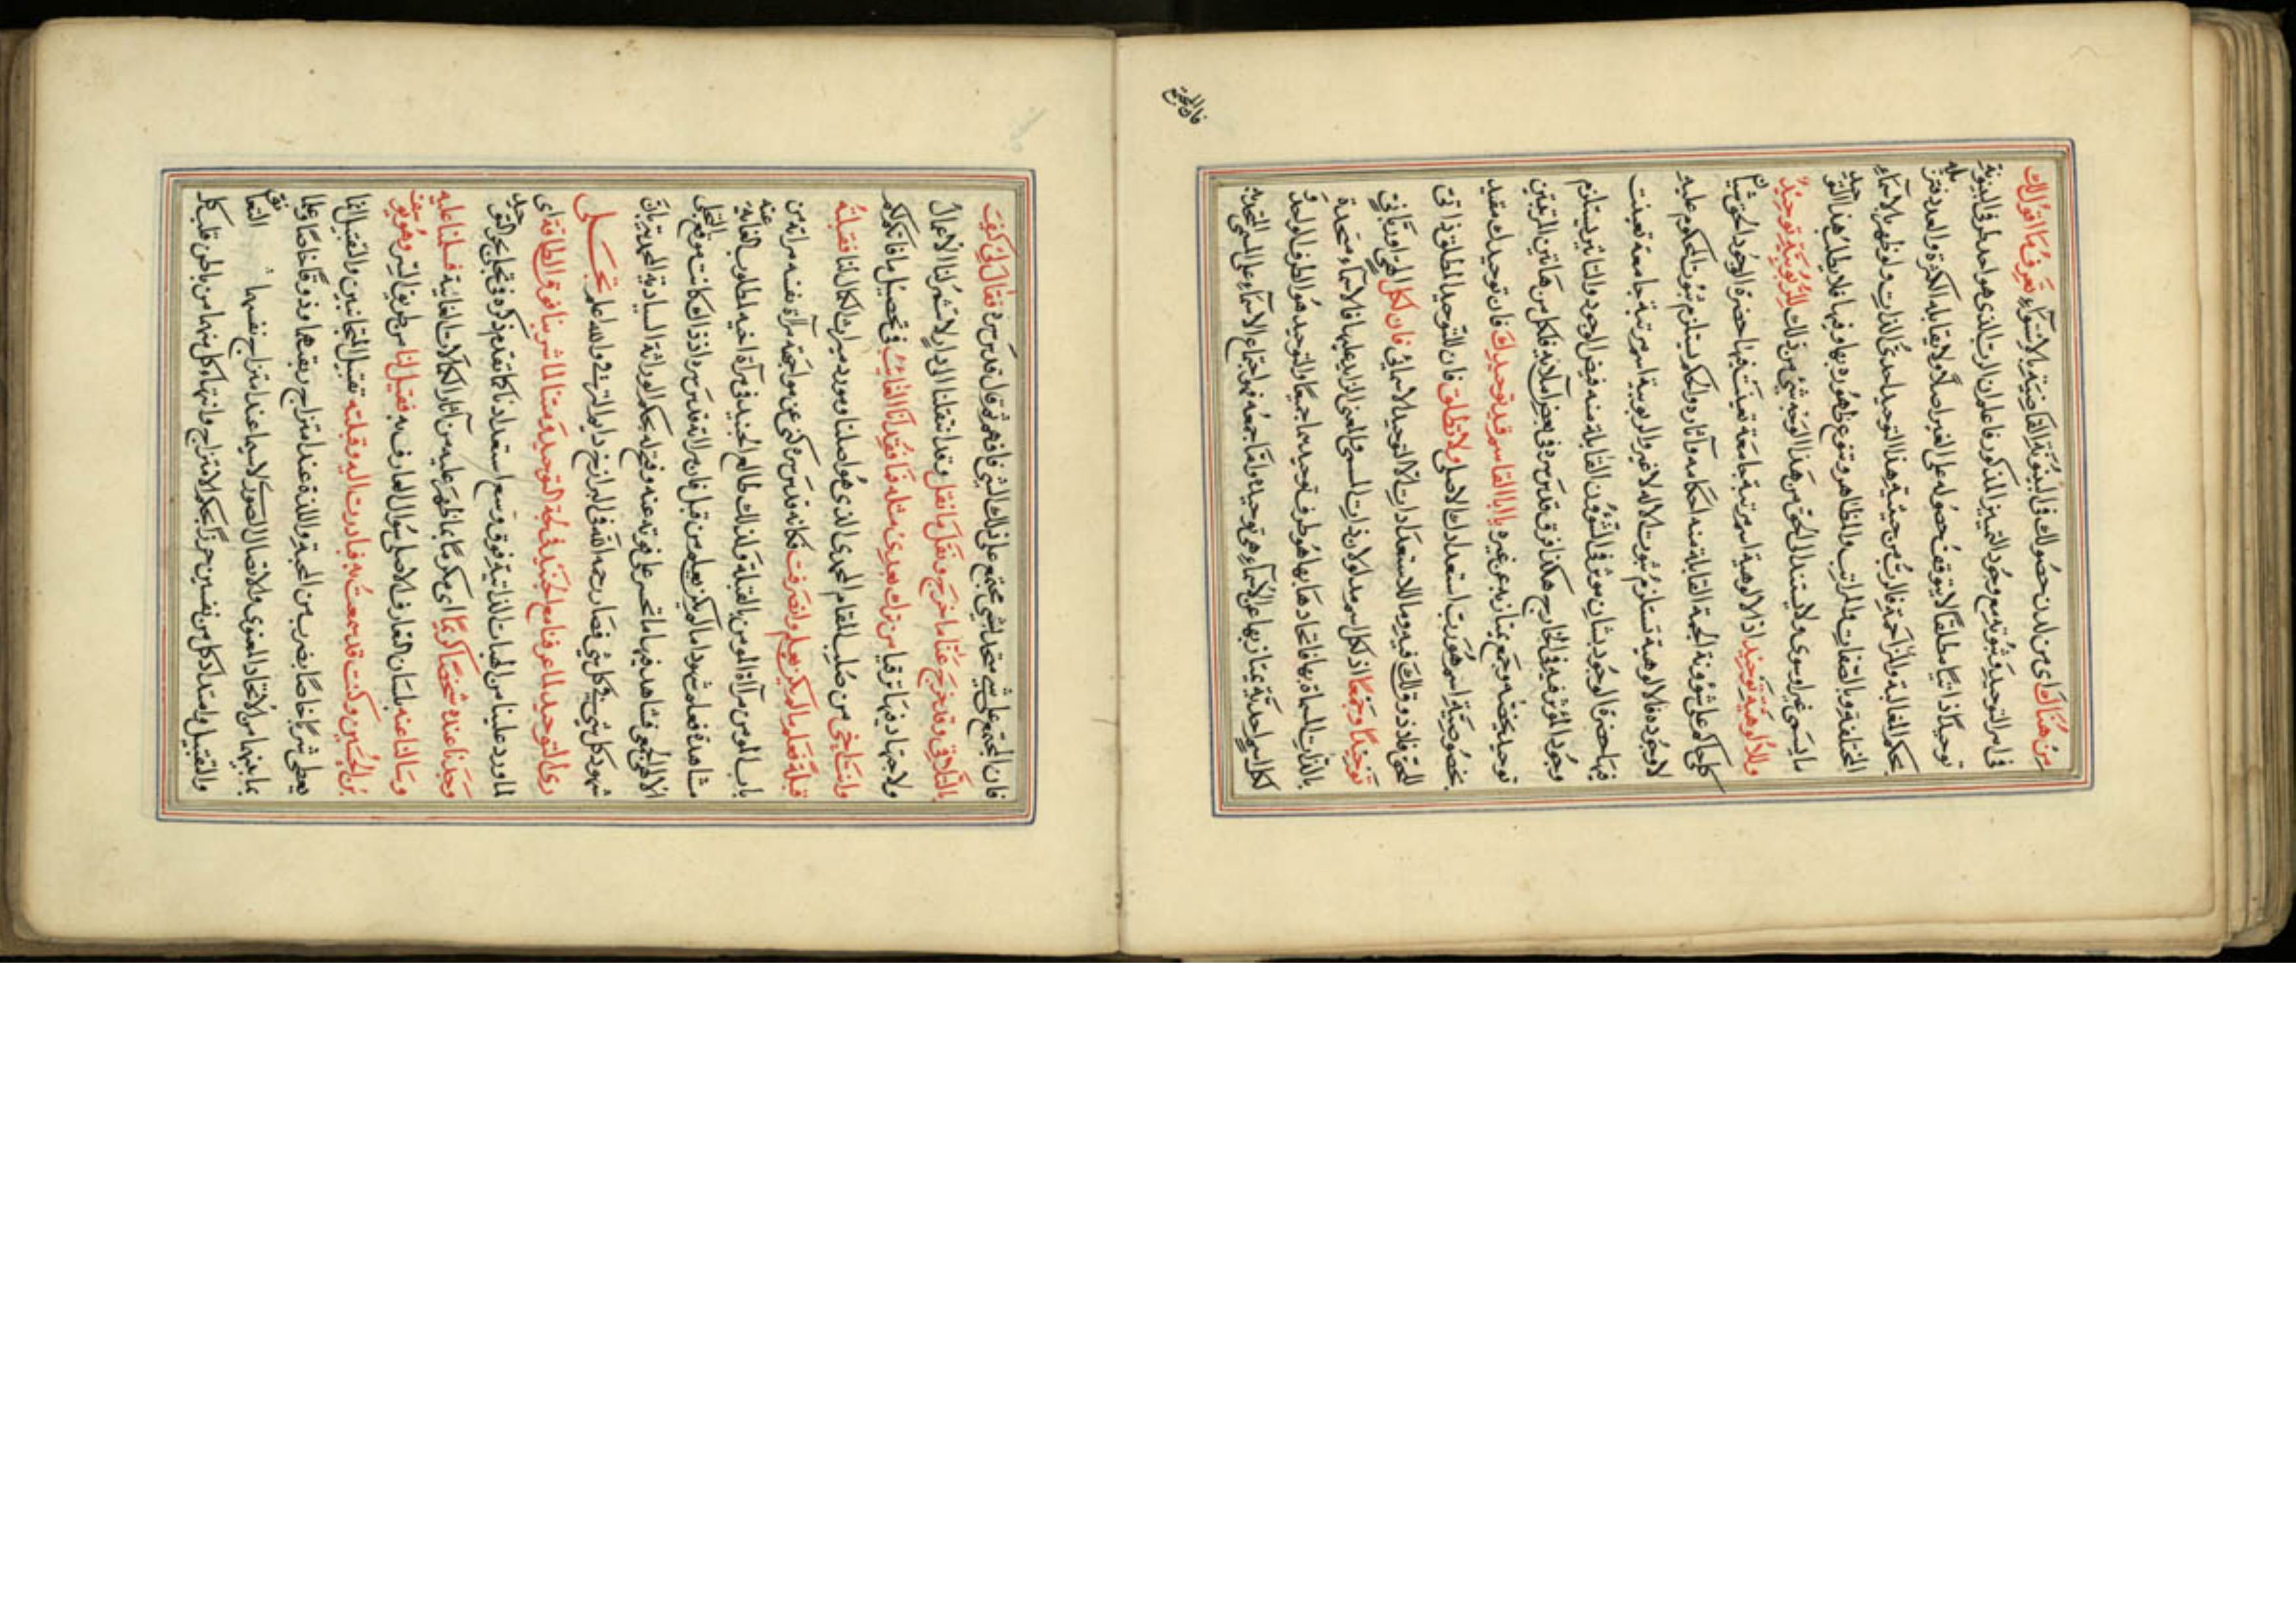 من هناك اى من لدن حصولك في البينونة القاضية بالاستواء تعرف ما اقول لك
في امر التوحيد وثبوته مع وجود التمييز المذكور فاعلم ان الرب الذي هو احد طرفي البينونة
توحيدًا ذاتيًا مطلقًا لا يتوقف حصوله على الغير اصلًا ولا يقابله الكثرة والعدد
بحكم المغالبة والمزاحمة فالرب من حيثية هذا التوحيد احدى الذات ولو ظهر بالاسماء
المختلفة وبالصفات والمراتب والمظاهر وتنوع ظهوره بها وفيها فلا يطلب هذا التوحيد
ما يسمى غيرا وسوى ولا يستند الى الحق من هذا الوجه شئ من ذلك للربوبية توحيد
وللالوهية توحيد اذ الالوهية اسم مرتبة جامعة تعينت فيها حضرة الوجود الحق شانا
كليا حاكما على شؤونه الجمة القابلة منه احكامه وآثاره والحكم يستلزم ثبوت المحكوم عليه
لا وجوده فالالوهية تستلزم ثبوت المالوه لا غير والربوبية اسم مرتبة جامعة تعينت
فيها حضرة الوجود بشان موثر في الشؤون القابلة منه فيض الوجود والتاثير يستلزم
وجود الموثر فيه في الخارج هكذا فرق قدس سره في بعض املائه فلكل من هاتين المرتبتين
توحيد يخصه وجمع يمتاز به عن غيره يا ابا القاسم قيد توحيدك فان توحيدك مقيد
بخصوصية اسم هو رب استعدادك الاصلى ولا تطلق فان للتوحيد المطلق ذاتى
للحق فلا ذوق لك فيه وما للاستعدادات الا التوحيد الاسمائى فان لكل اسم الهى او ربانى
توحيدًا وجمعًا اذ لكل اسم مدلولان ذات المسمى والمعنى الزايد عليها فالاسماء متحدة
بالذات المسماة بها فاتحادها بها هو طرف توحيدها جميعا والتوحيد هو الطرف الواحد
لكل اسم احدية يمتاز بها عن الاسماء هي توحيده واما جمعه فهو اجتماع الاسماء على المسمى المتحد به
فان المجتمع
فان المجتمع على شى متحد الشى مجتمع على ذلك الشى فافهم ثم قال قدس سره فقال لى كيف
بالتلافى وقد خرج عنا ما خرج ونقل ما نقل وقد انتقلنا الى دار لا تثمر لنا الاعمال
ولا جهاد فيها ترقيا من ترك بعدى مثله فما فقد انا الغائب في تحصيل ما فاتكم
وانت اخى من صلب المقام المحمدى الذى هو اصلنا ومورد ميراث الكمال لنا فقبلته
قبلة فعلم ما لم يكن يعلم وانصرفت فكانه قدس سره كنى عن مواجهة مرآة نفسه مرآته من
باب المومن مرآة المومن بالقبلة ولذلك طالع الجنيد في مرآة اخيه المطلوب الغاية عنه
مشاهدة فعلمت شهودا ما لم يكن يعلم من قبل فان مرآته قدس سره اذ ذاك كانت موقع التجلى
الالهى الجمعى فشاهد فيها ما تحسر على فوته عنه بحكم الوراثة السيادية المحمدية بان
شهود كل شى فى كل شى فصار رحمه الله في البرازخ دايم الترقى والله اعلم تجلى
رى التوحيد لما غرفنا مع الجنيد في لجة التوحيد ومتنا لما شربنا فوق الطاقة اى
لما ورد علينا من الهبات الذاتية فوق وسع استعدادنا كما تقدم ذكره في تجلى بحر التوحيد
وجدنا عنده شخصا كريما اى مكرما بما ظهر عليه من آثار الكمالات الغائية فسلمنا عليه
وسالنا عنه بلسان التعارف الاصلى سؤال العارف به فقيل لنا من طريق السر وهو يوسف
بن الحسين وكنت قد سمعت به فبادرت اليه وقبلته تقبيل المتجانسين والتقبيل انما
يعطى شربا خاصا بضرب من المحبة واللذة عند امتزاج ريقهما وذوقا خاصا وعلما
بما بينهما من الاتحاد المعنوى والاتصال الصورى لا سيما عند امتزاج نفسيهما
والتقبيل وامتداد كل من نفسين بحكم الامتزاج وانتهاء كل منهما من باطن قلب كل